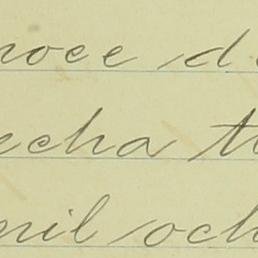 noce d
echa t
mil och